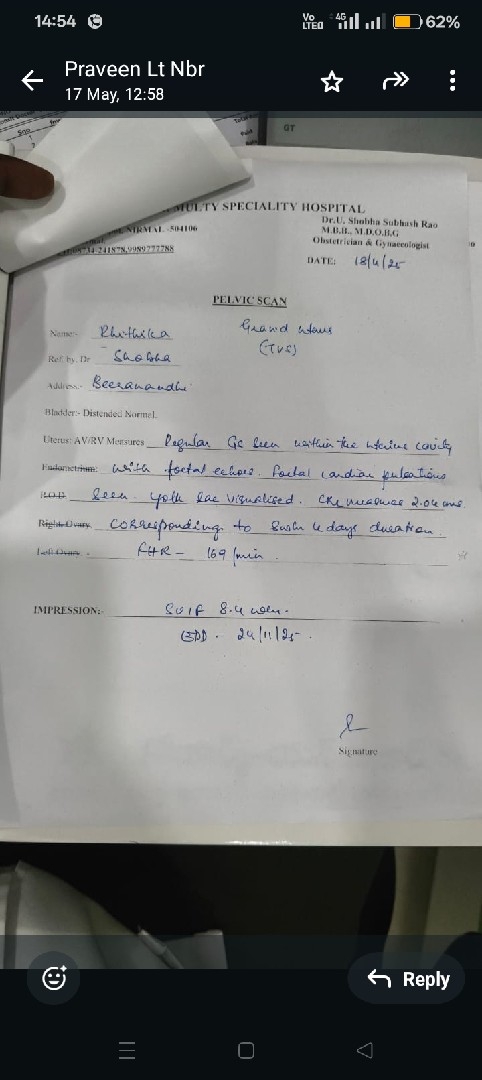 14:54
Vo LTE 4G 62%
Praveen Lt Nbr
17 May, 12:58
MULTY SPECIALITY HOSPITAL
NIRMAL -504106
Dr.U. Shobha Subhash Rao
M.B.B., M.D.O.B.G
Obstetrician & Gynaecologist
08734-241878,9989777788
DATE: 18/4/25
PELVIC SCAN
Name:- Rhithika
Gravid uterus
(TVS)
Ref. by. Dr Shobha
Address:-
Bladder:- Distended Normal.
Uterus: AV/RV Measures Regular GS seen within the uterine cavity
Endometrium: with foetal echoes. Foetal cardiac pulsations
P.O.D. seen. yolk sac visualised. CRL measures 2.04 cms.
Right Ovary corresponding to 8 wks 4 days duration.
Left Ovary - FHR - 169/min.
IMPRESSION:- SUIF 8.4 wks.
EDD - 24/11/25.
Signature
Reply